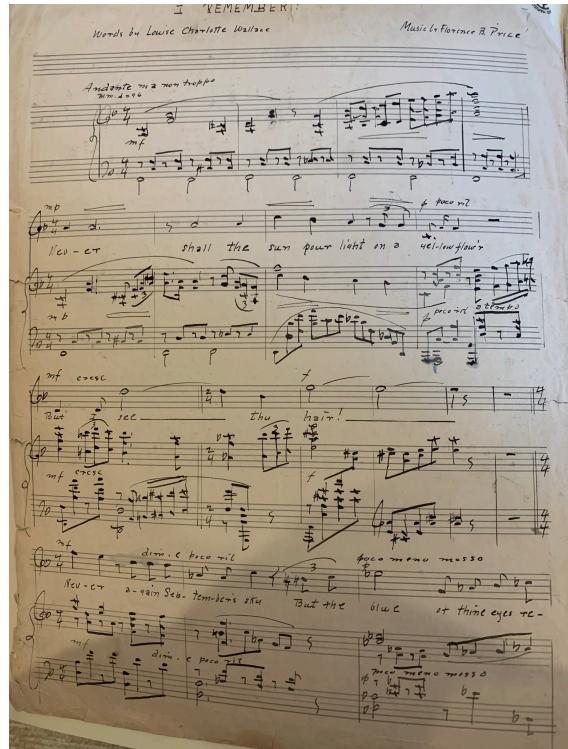 I REMEMBER!
Words by Louise Charlotte Wallace
Music by Florence B. Price
Andante ma non troppo
mf
mp
p poco rit
Nev-er shall the sun pour light on a yel-low flow'r
mp
p poco rit a tempo
mf cresc f
But I see thy hair!
mf cresc f
mf dim. e poco rit poco meno mosso
3
Nev-er a-gain Sep-tember's sky But the blue of thine eyes re-
mf dim. e poco rit
poco meno mosso